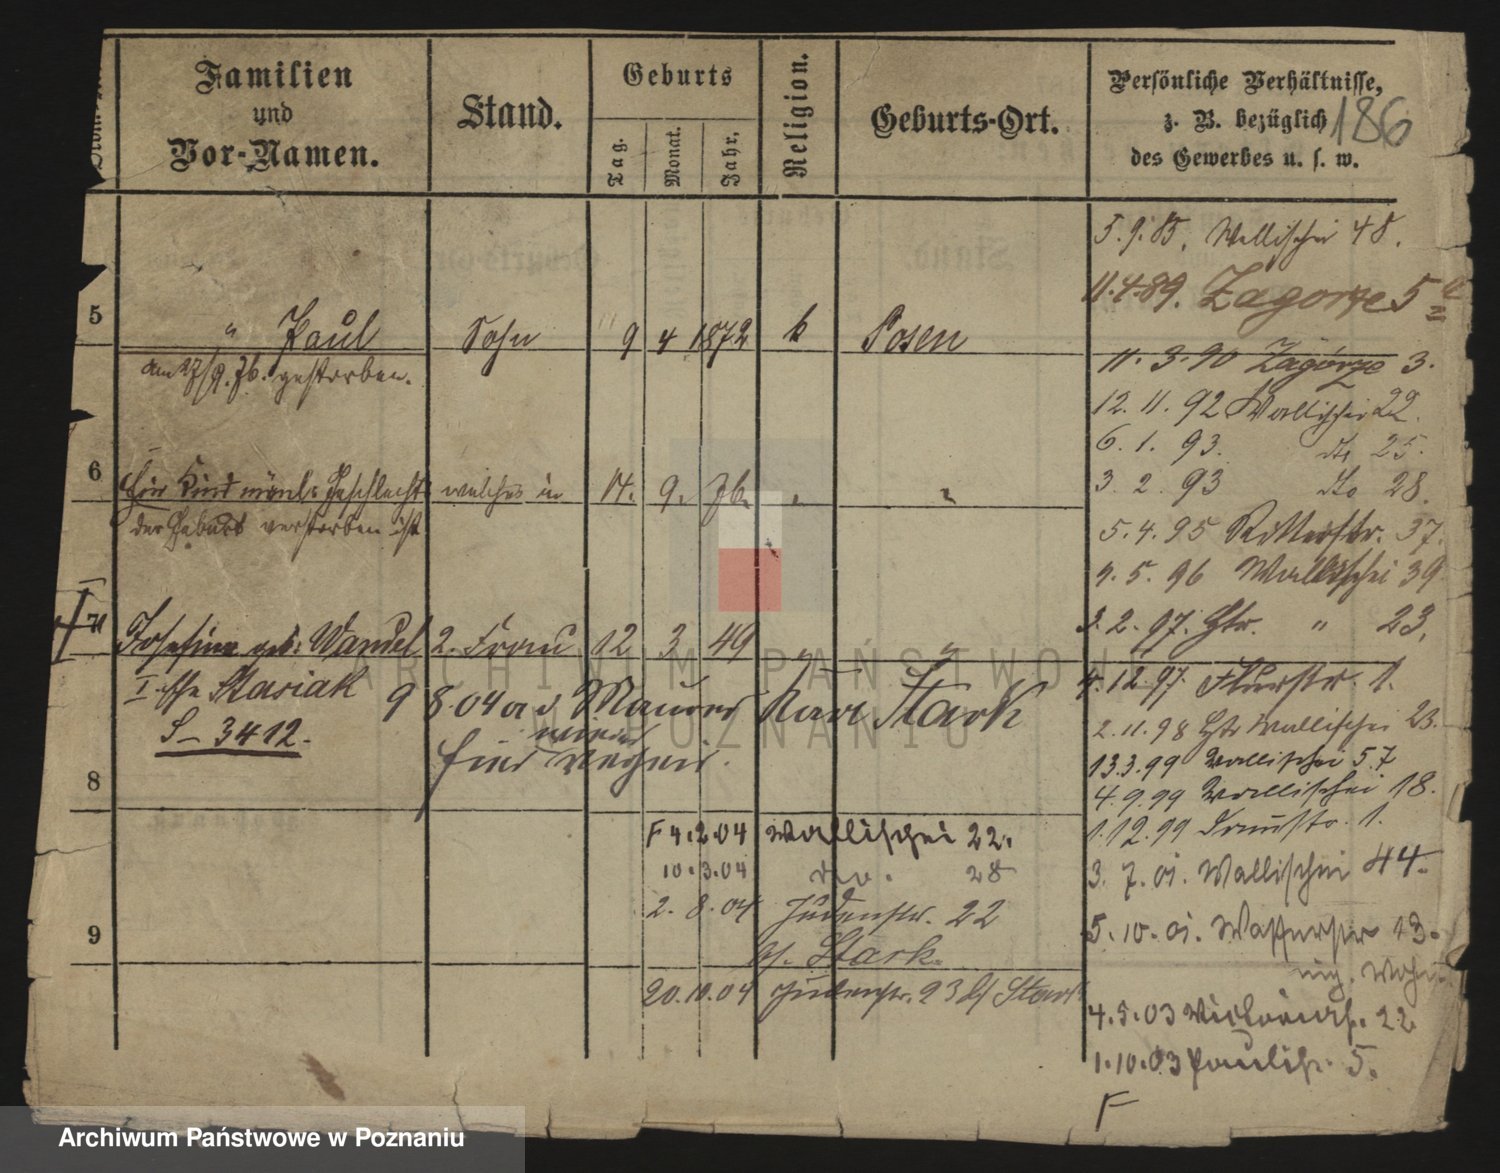 Familien
und
Vor-Namen.
Stand.
Geburts
Tag.
Monat.
Jahr.
Religion.
Geburts-Ort.
Persönliche Verhältnisse,
z. B. bezüglich
des Gewerbes u. s. w.
186
5.9.85. Wallischei 48.
11.4.89. Zagorze 5
5 " Paul Sohn 9 4 1872 k Posen
am 27/9. 76. gestorben.
11.3.90 Zagórze 3.
12.11.92 Wallischei 22.
6.1.93. do 25.
3.2.93 dto 28.
6 Ein Kind männl. Geschlechts welches in 14. 9. 76. " "
der Geburt verstorben ist
5.4.95 Ritterstr. 37.
9.5.96 Wallischei 39
3.2.97. Htr. " 23.
7 Josefine geb. Wandel 2. Frau 12 3 49 " "
I. Ehe Stasiak
S - 3412.
9 8.04 a d Maurer Karl Stark
4.12.97 Flurstr. 1.
2.11.98 Htr Wallischei 23.
13.3.99 Wallischei 57
4.9.99 Wallischei 18.
1.12.99 1.
8
F 4.2.04 Wallischei 22.
10.3.04 do. 28
2.8.04 Judenstr. 22
b/ Stark.
3.7.01. Wallischei 44.
5.10.01. Wasserstr 13.
9
20.10.04 Judenstr. 23 b/ Stark
4.5.03 22
1.10.03 Paulistr. 5.
F
ARCHIWUM PAŃSTWOWE
W POZNANIU
Archiwum Państwowe w Poznaniu